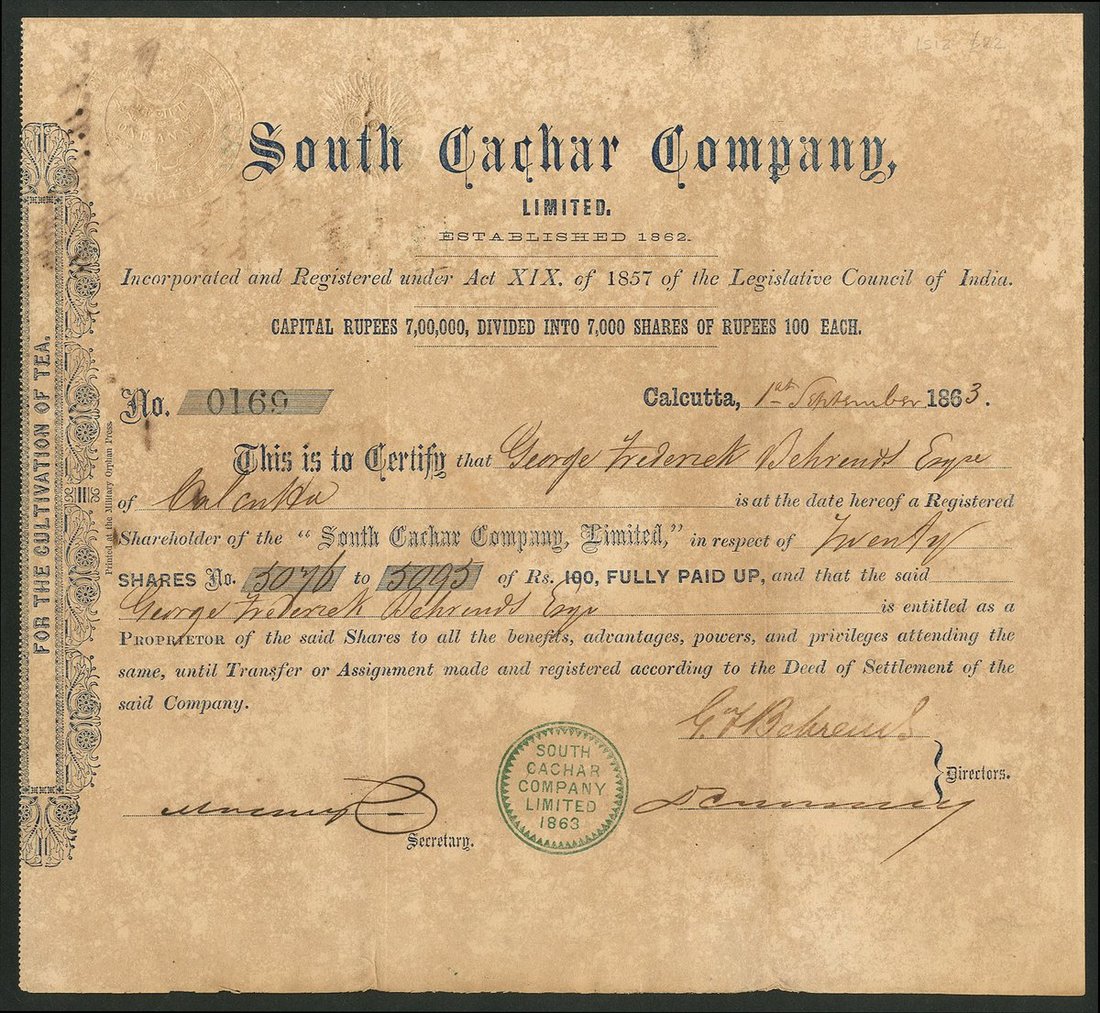 1512 £22
South Cachar Company,
LIMITED.
ESTABLISHED 1862.
Incorporated and Registered under Act XIX. of 1857 of the Legislative Council of India.
CAPITAL RUPEES 7,00,000, DIVIDED INTO 7,000 SHARES OF RUPEES 100 EACH.
No. 0169 Calcutta, 1st September 1863.
This is to Certify that George Frederick Behrends Esqre
of Calcutta is at the date hereof a Registered
Shareholder of the "South Cachar Company, Limited," in respect of Twenty
SHARES No. 5076 to 5095 of Rs. 100, FULLY PAID UP, and that the said
George Frederick Behrends Esqre is entitled as a
PROPRIETOR of the said Shares to all the benefits, advantages, powers, and privileges attending the
same, until Transfer or Assignment made and registered according to the Deed of Settlement of the
said Company.
G. F. Behrends
Directors.
Secretary.
SOUTH
CACHAR
COMPANY
LIMITED
1863
FOR THE CULTIVATION OF TEA.
Printed at the Military Orphan Press.